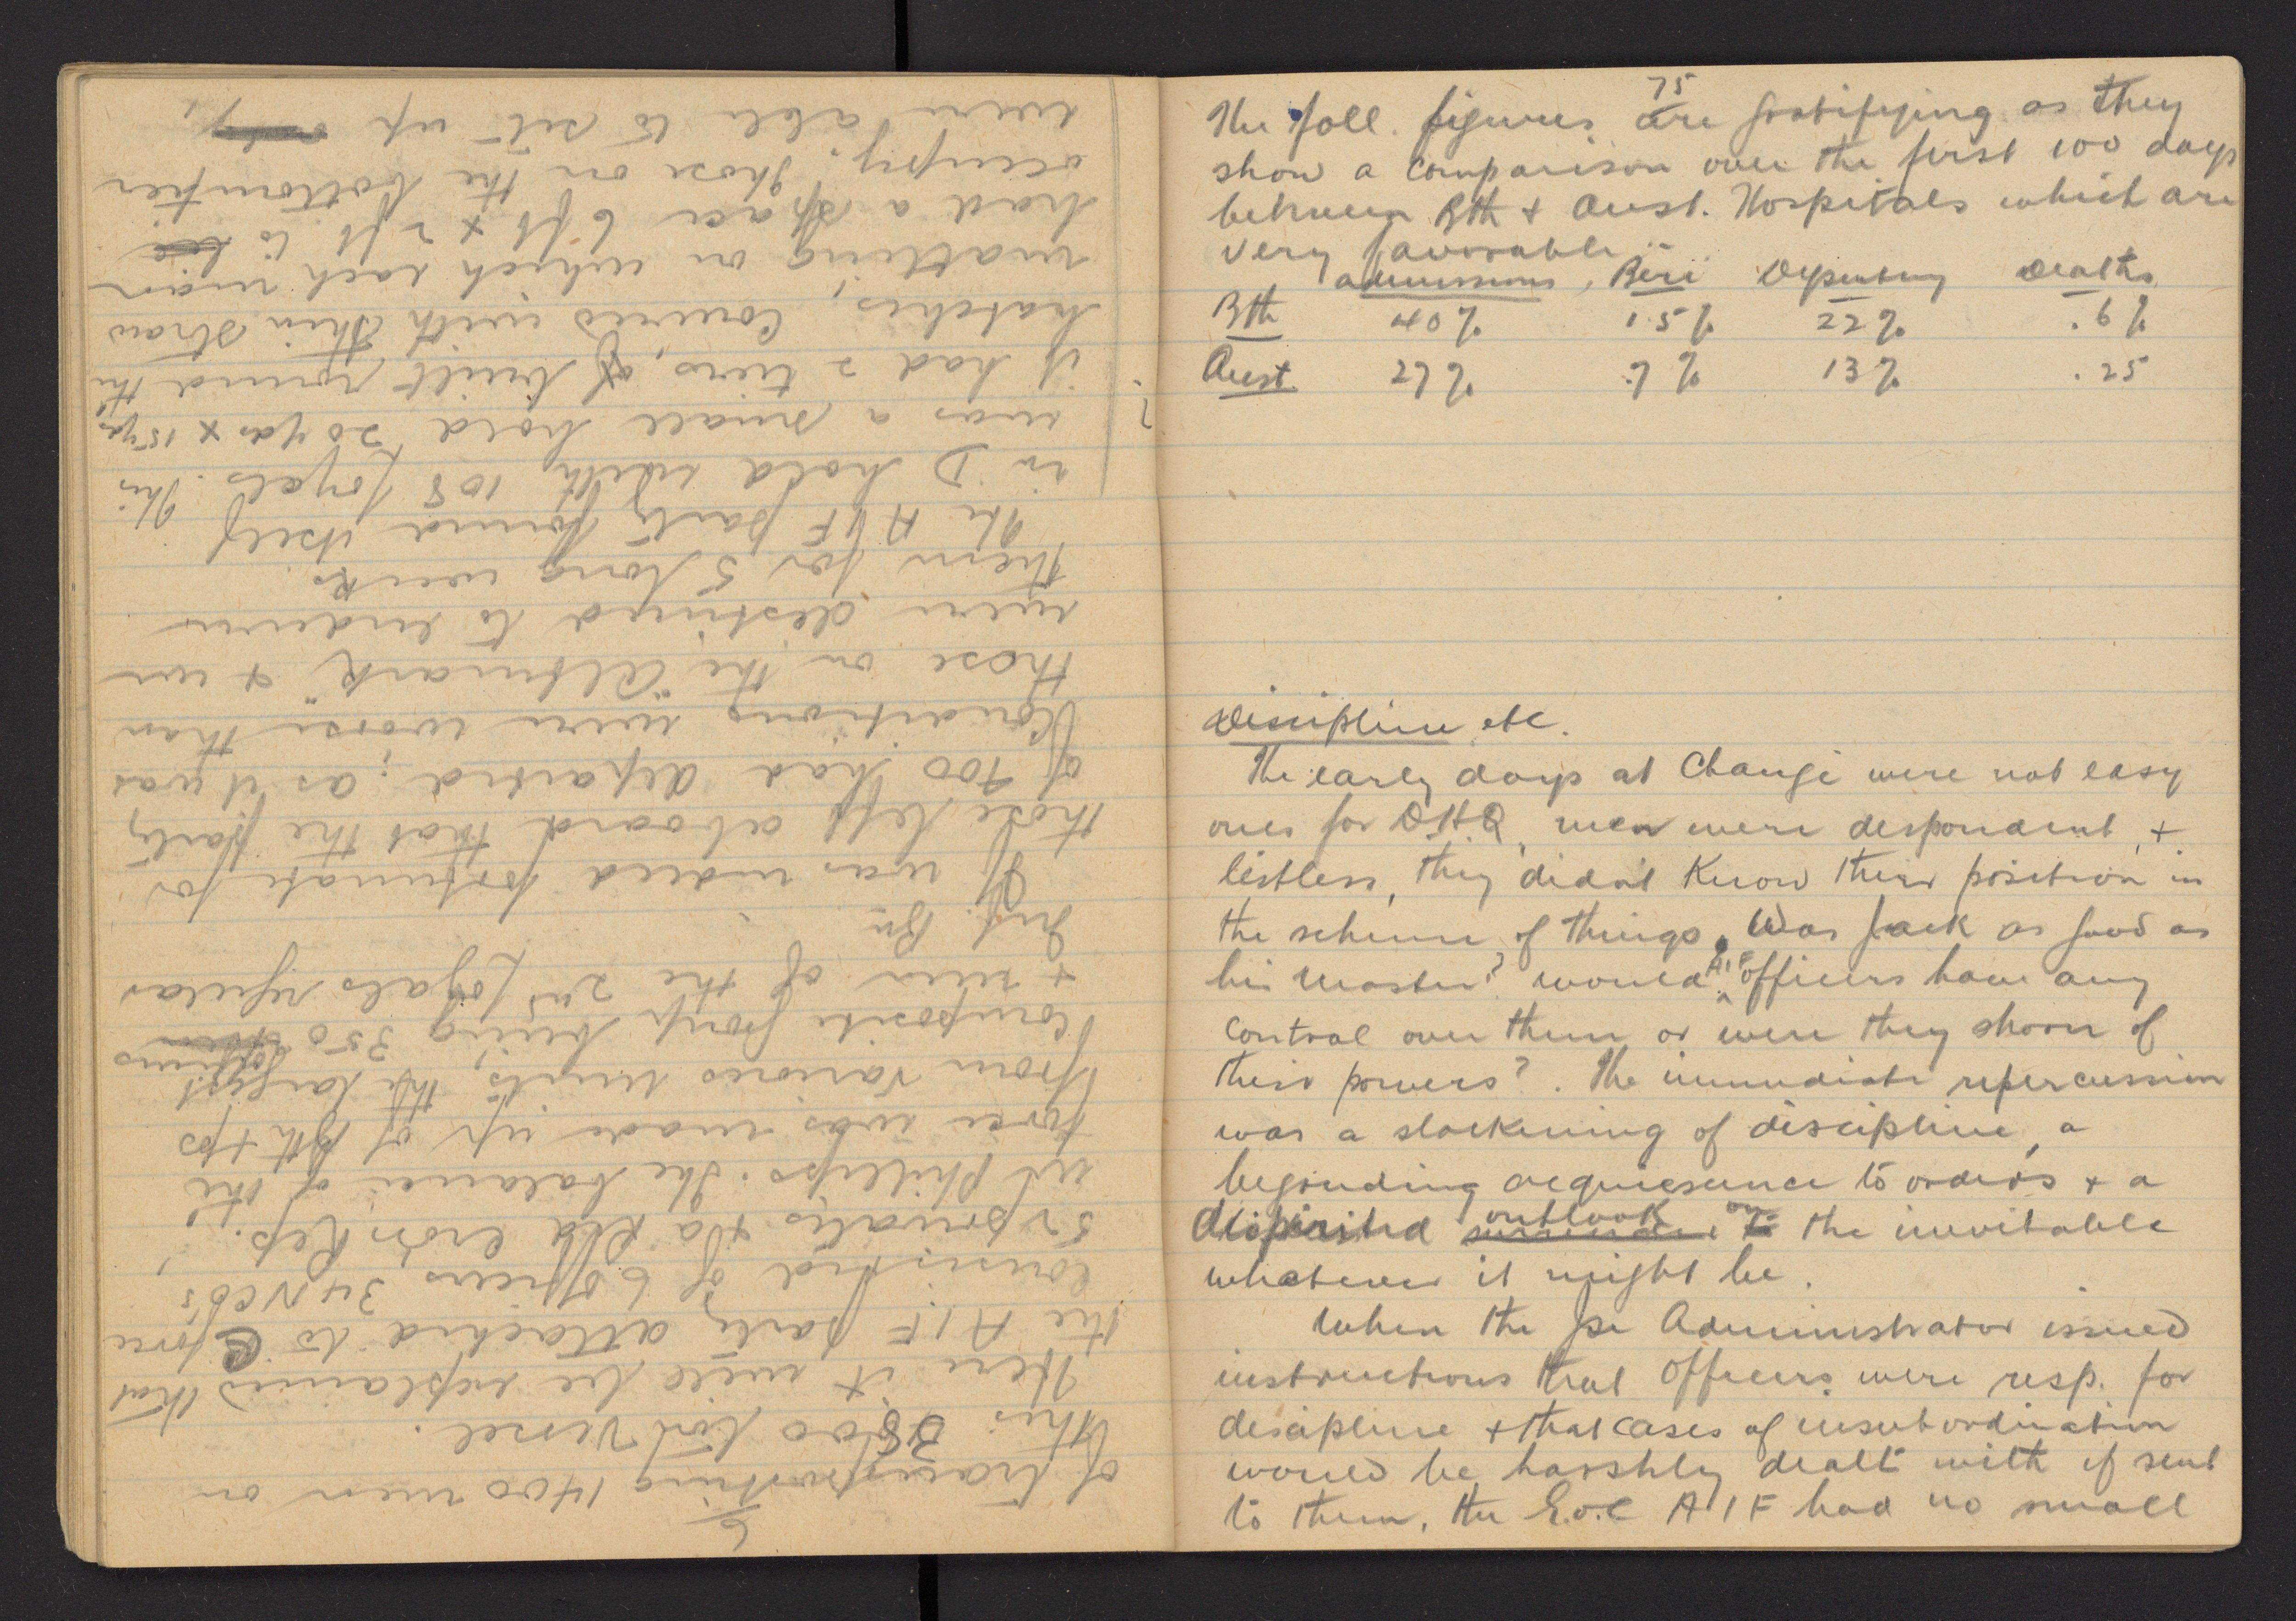 6
of transporting 1400 men on
this 3800 ton vessel.
Here it will be explained that
the A I F party attached to C force
consisted of 6 Officers 34 NCO's
52 privates + a Red Cross Rep.,
Mr Phillips. The balance of the
force was made up of Bth tps
from various units, the largest
composite group being 350 officers
+ men of the 2nd Loyals regular
Inf. Bn
It was indeed fortunate for
those left aboard that the party
of 400 had departed; as it was
Conditions were worse than
those on the "Altmark" & we
were destined to endure
them for 5 long weeks.
The A I F party found itself
in D hold with 108 Loyals. This
was a small hold 20 yds x 15 yds
it had 2 tiers, built round the
hatches, covered with thin straw
matting on which each man
had a space 6 ft x 2 ft to
occupy. Those on the bottom tier
were able to sit up
75
The foll. figures are gratifying as they
show a comparison over the first 100 days
between Bth + Aust. Hospitals which are
very favorable :-
admissions, Beri Dysentery Deaths
Bth 40% 1.5% 22% .6%
Aust. 27% .7% 13% .25
Discipline etc.
The early days at Changi were not easy
ones for DHQ, men were despondent, +
listless, they didn't know their position in
the scheme of things. Was Jack as good as
his master? would A I F officers have any
control over them or were they shorn of
their powers?. The immediate repercussion
was a slackening of discipline, a
begruding acquiesence to orders + a
dispirited outlook on the inevitable
whatever it might be.
When the Jse Administrator issued
instructions that Officers were resp. for
discipline + that cases of insubordination
would be harshly dealt with if sent
to them, the G.O.C A I F had no small